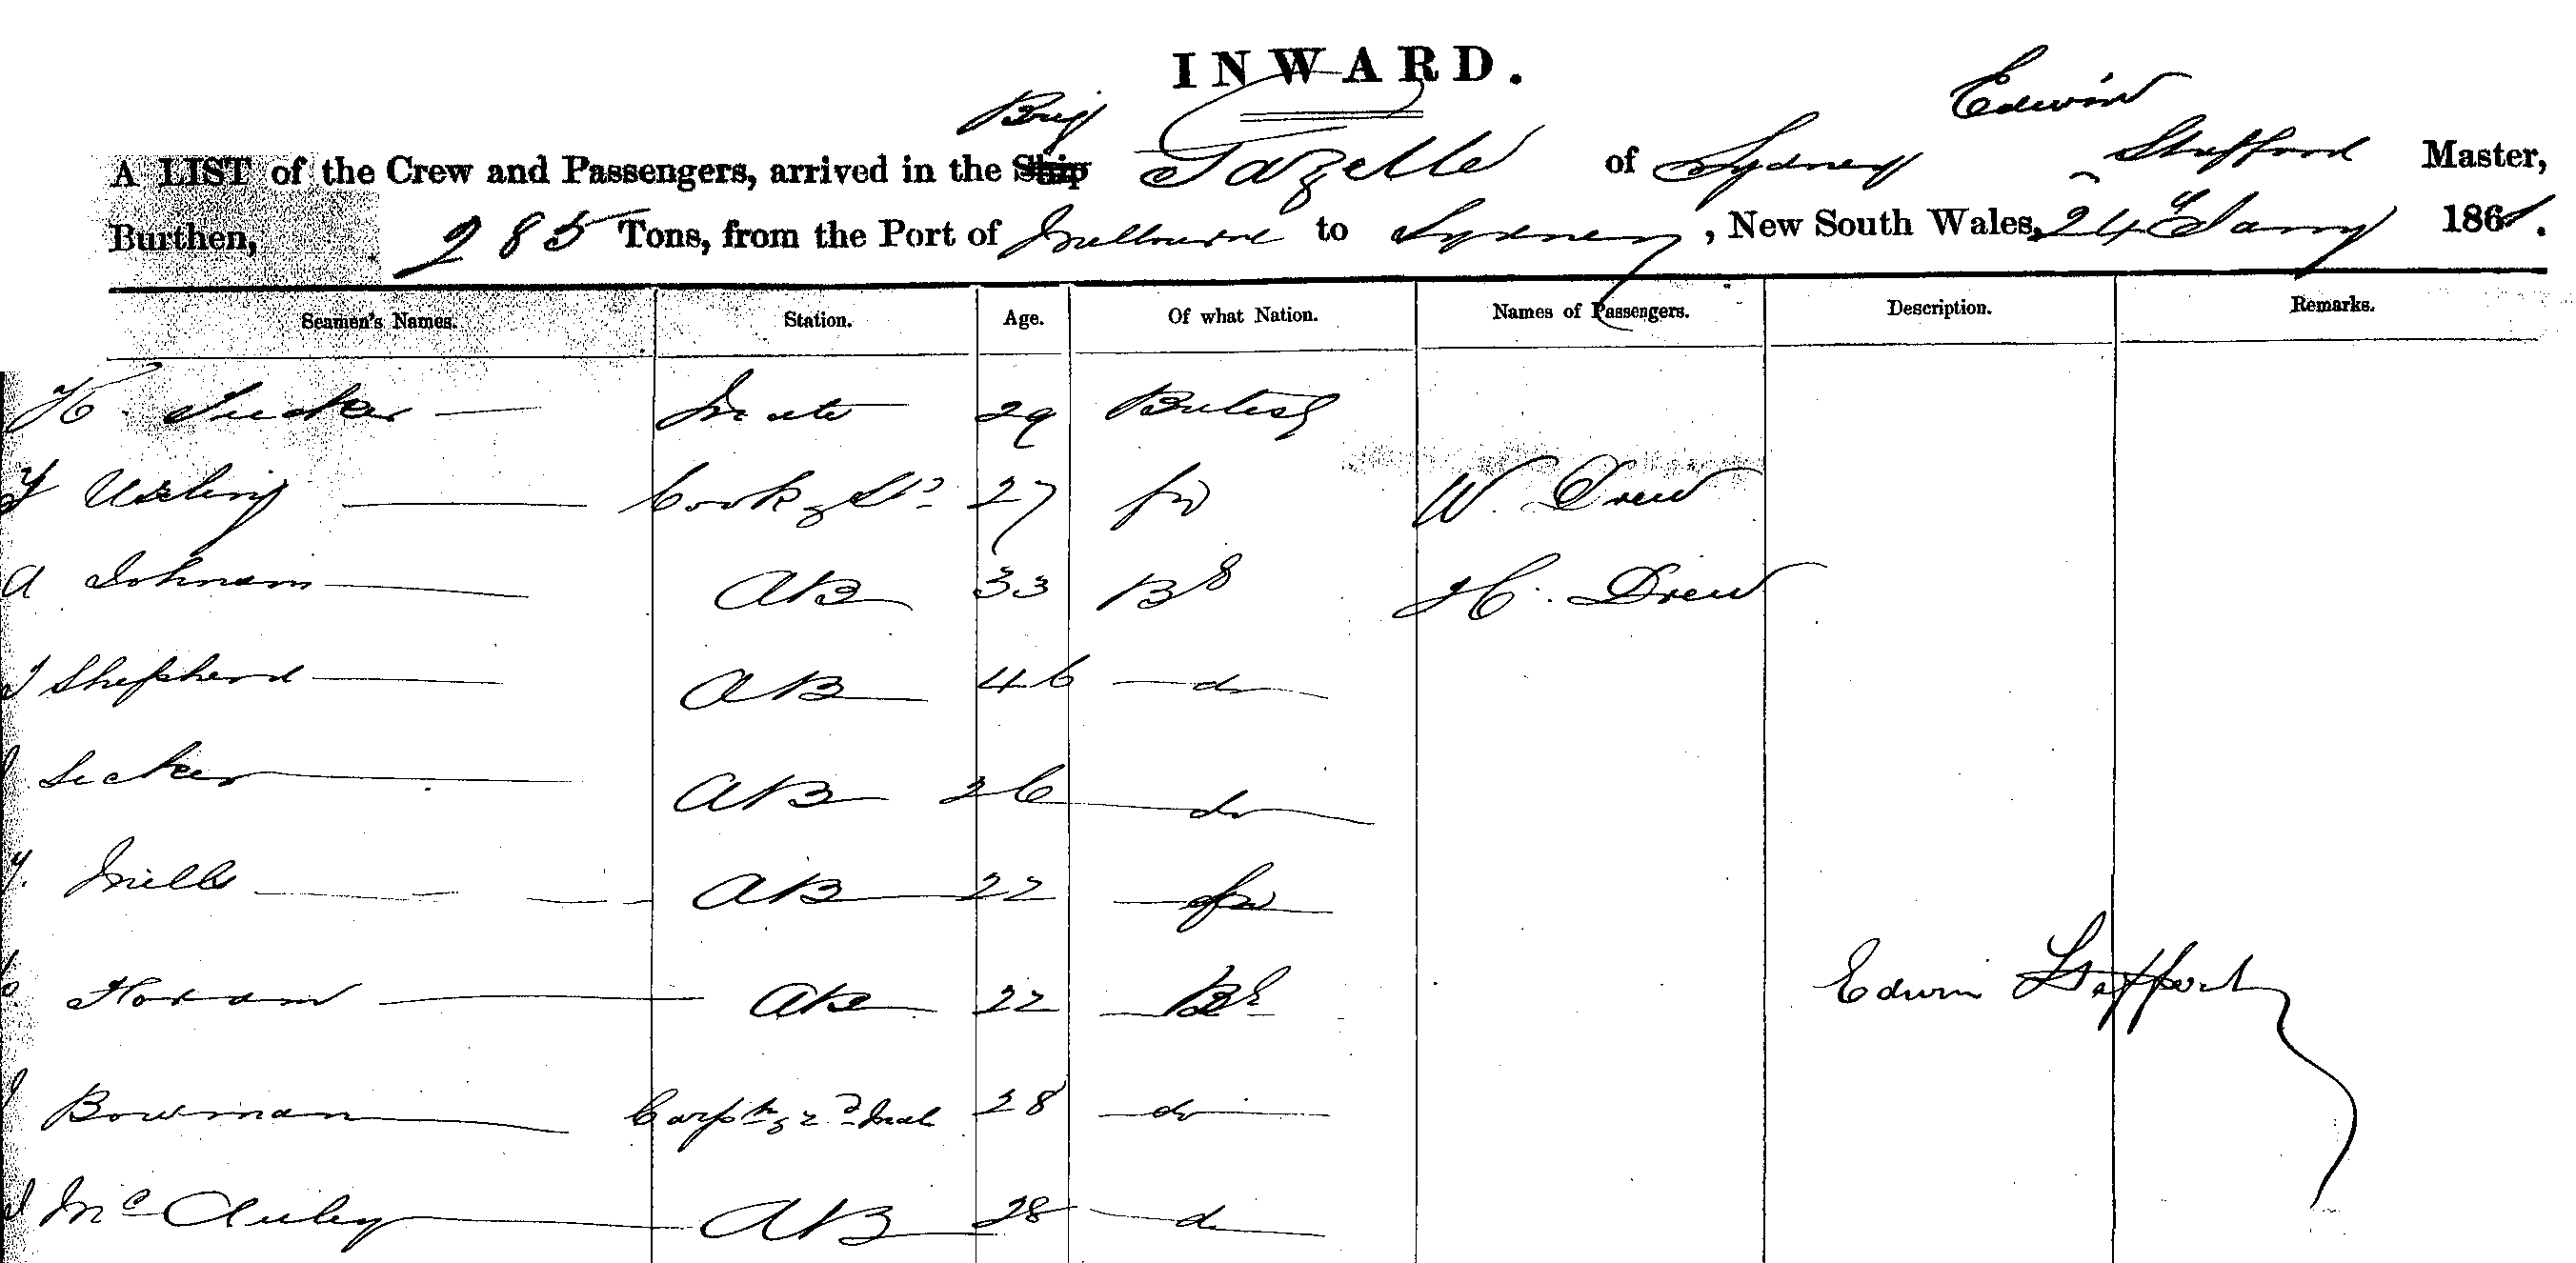 INWARD.
Edwin
Brig
A LIST of the Crew and Passengers, arrived in the Ship Gazelle of Sydney Stafford Master,
Burthen, 285 Tons, from the Port of Melbourne to Sydney, New South Wales, 24 Jany 1861.
Seamen's Names. Station. Age. Of what Nation. Names of Passengers. Description. Remarks.
H. Tucker Mate 29 British
Cook & St 27 W. Drew
A Johnson AB 33 Br H. Drew
J Shepherd AB 46 do
AB 26 do
Mills AB 22
AB 22 Br Edwin Stafford
Bowman Carptr & 2d Mate 28 do
J McAuley AB 28 do